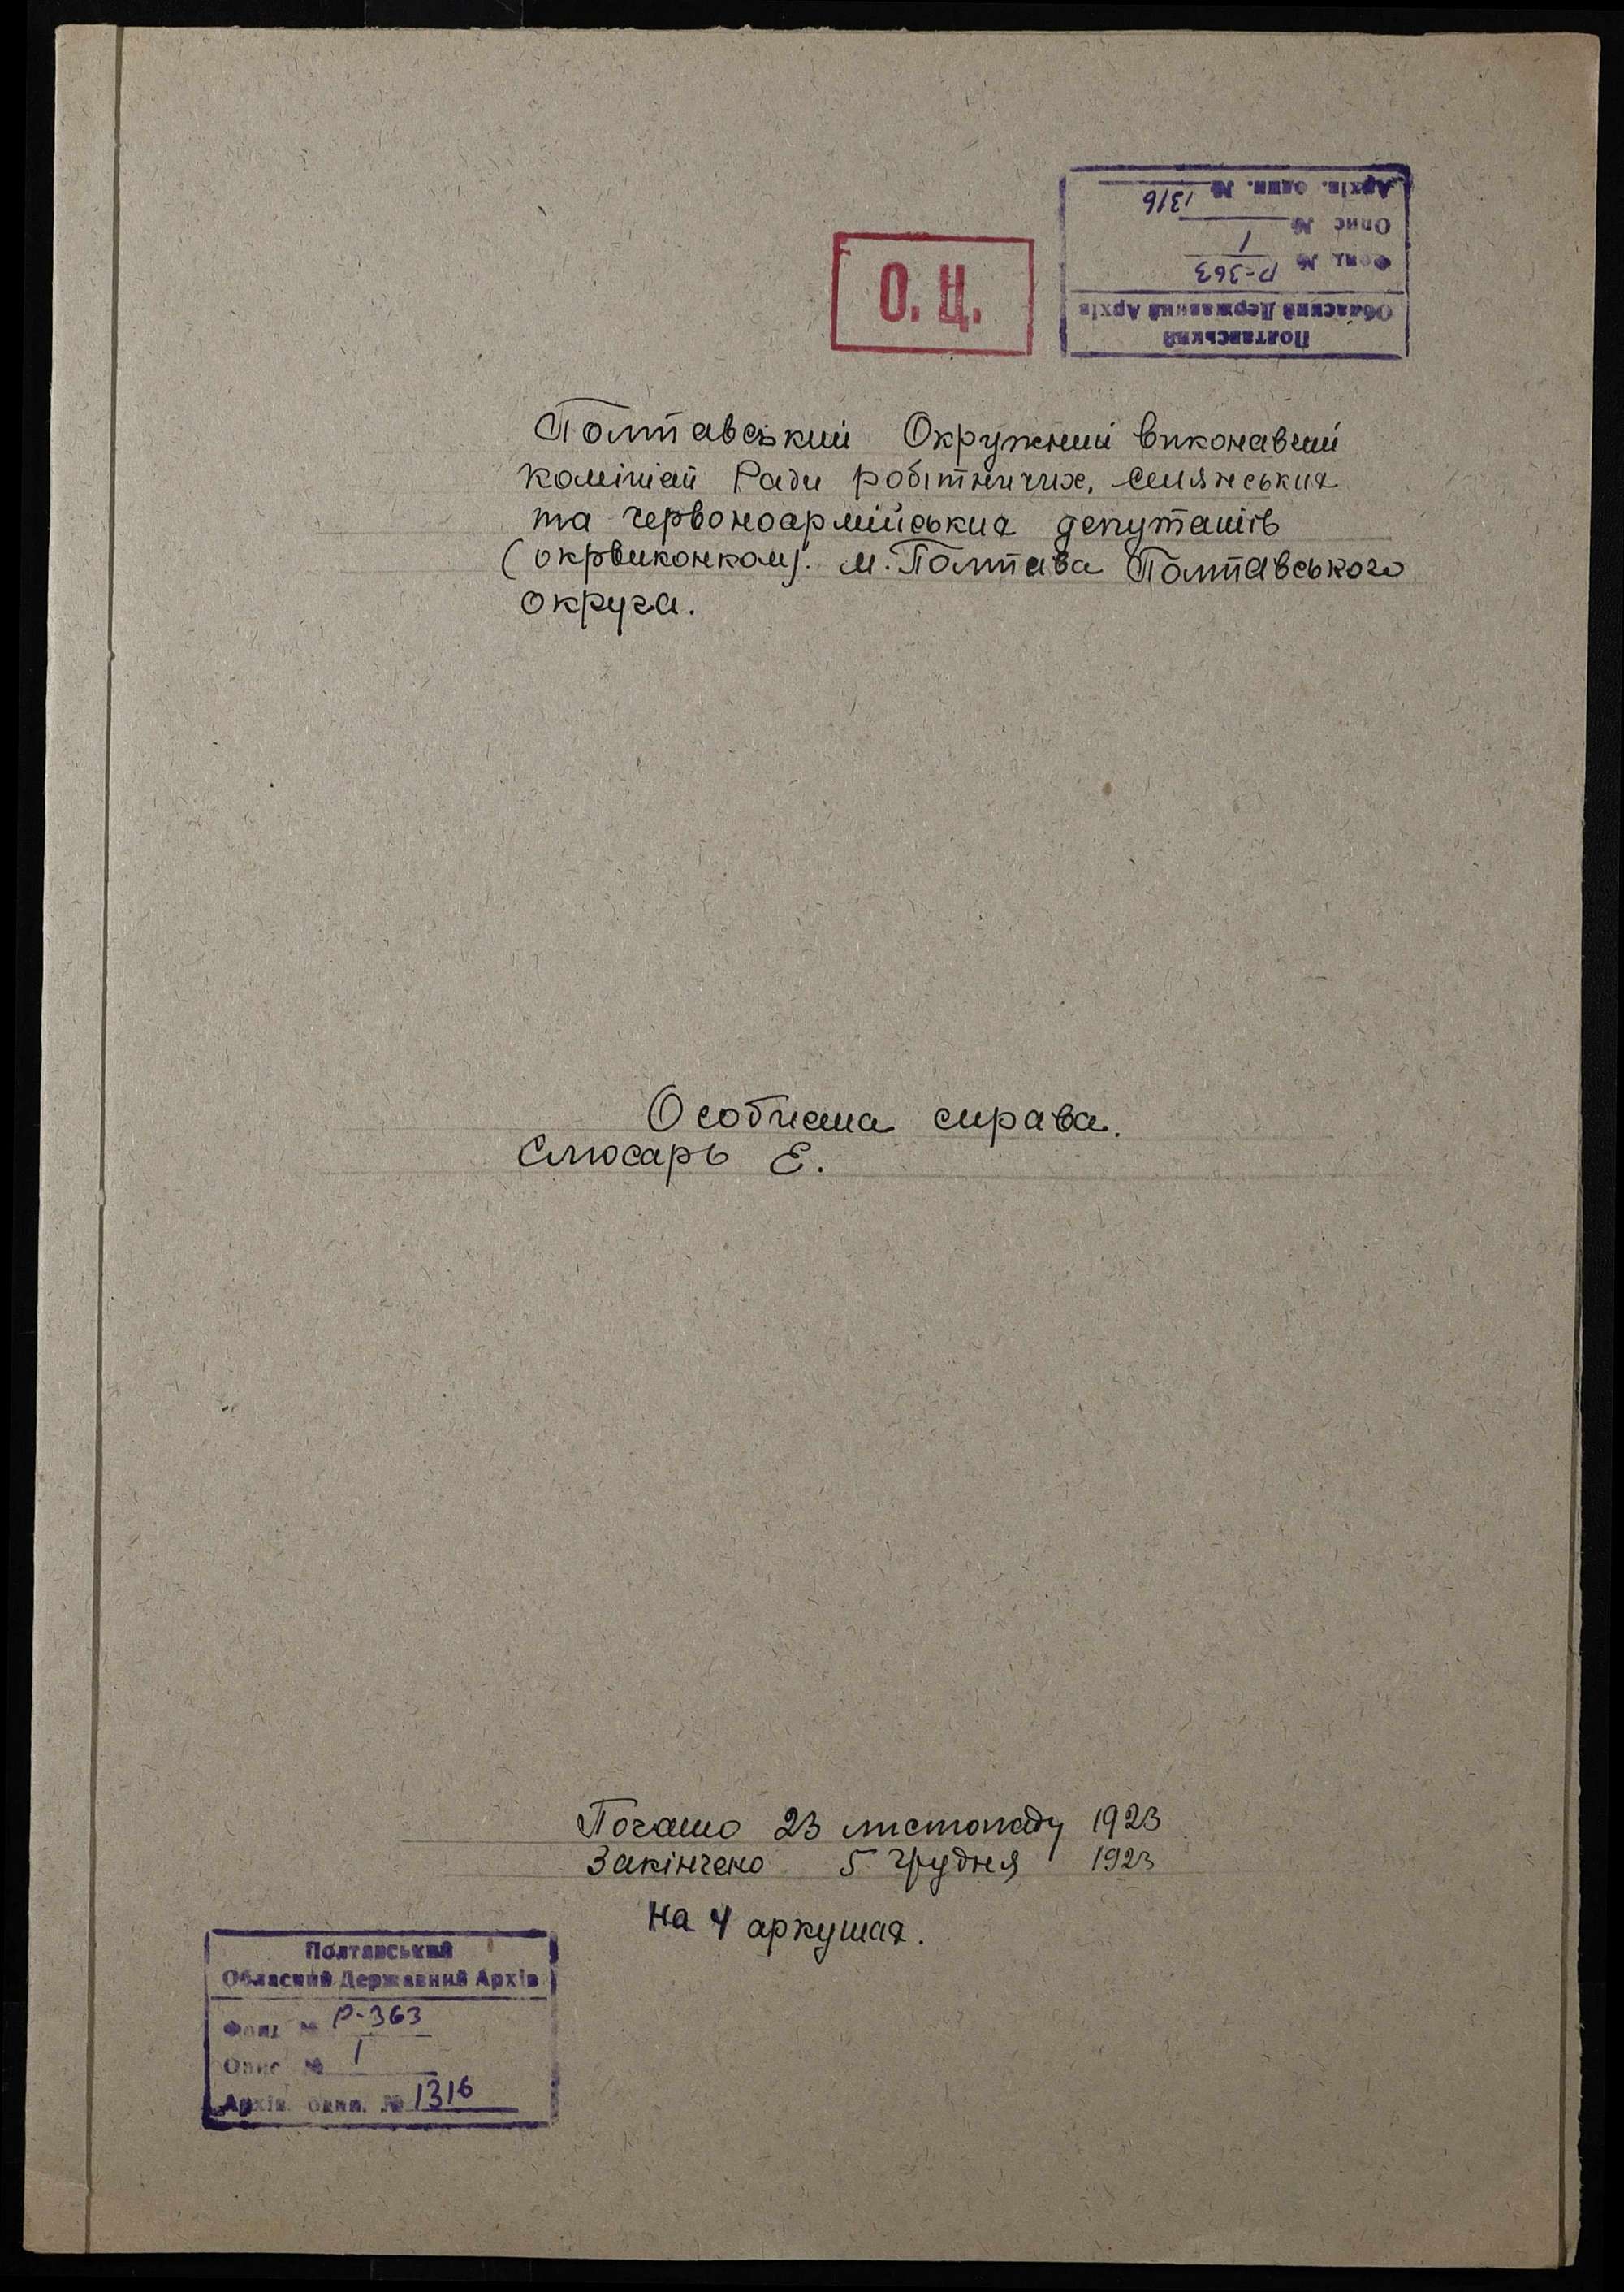 О. Ц.
Полтавський
Обласний Державний Архів
Фонд № Р-363
Опис № 1
Архів. один. № 1316
Полтавський Окружний виконавчий
комітет Ради робітничих, селянських
та червоноармійських депутатів
(окрвиконком). м. Полтава Полтавського
округа.
Особиста справа.
Слюсарь Е.
Почато 23 листопаду 1923
Закінчено 5 грудня 1923
на 4 аркушах.
Полтавський
Обласний Державний Архів
Фонд № Р-363
Опис № 1
Архів. один. № 1316